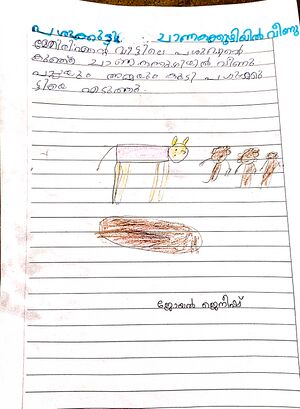 പശുക്കുട്ടി ചാണകക്കുഴിയിൽ വീണു
വീട്ടിലെ പശുവിന്റെ
കുഞ്ഞ് ചാണകക്കുഴിയിൽ വീണു
പപ്പയും അമ്മയും കൂടി പശുക്കു
ട്ടിയെ എടുത്തു.
ജോയൽ ജെനീഷ്